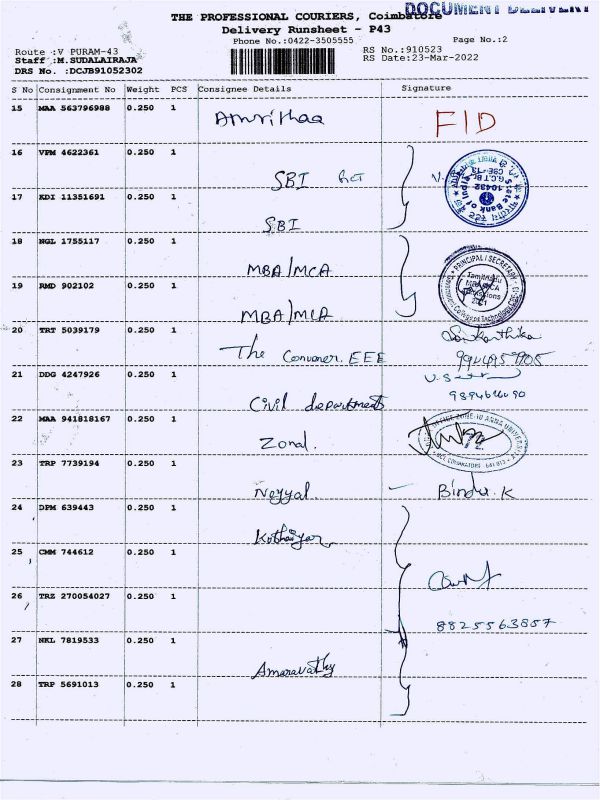 DOCUMENT DELIVERY
THE PROFESSIONAL COURIERS, Coimbatore
Delivery Runsheet - P43
Phone No.:0422-3505555
Page No.:2
Route :V PURAM-43
RS No.:910523
Staff :M.SUDALAIRAJA
RS Date:23-Mar-2022
DRS No. :DCJB91052302
S No Consignment No Weight PCS Consignee Details Signature
15 MAA 563796988 0.250 1 Amrithaa FID
16 VPM 4622361 0.250 1 SBI
17 KDI 11351691 0.250 1 SBI
State Bank of
10432
18 NGL 1755117 0.250 1 MBA/MCA
19 RMD 902102 0.250 1 MBA/MCA
PRINCIPAL / SECRETARY
Tamilnadu
MBA MCA
Admissions
2021
20 TRT 5039179 0.250 1 The Convener. EEE
21 DDG 4247926 0.250 1 Civil department
22 MAA 941818167 0.250 1 Zonal.
ANNA UNIVERSITY
23 TRP 7739194 0.250 1 Neyyal. Bindu.K
24 DPM 639443 0.250 1
25 CMM 744612 0.250 1
26 TRZ 270054027 0.250 1
8825563857
27 NKL 7819533 0.250 1 Amaravathy
28 TRP 5691013 0.250 1